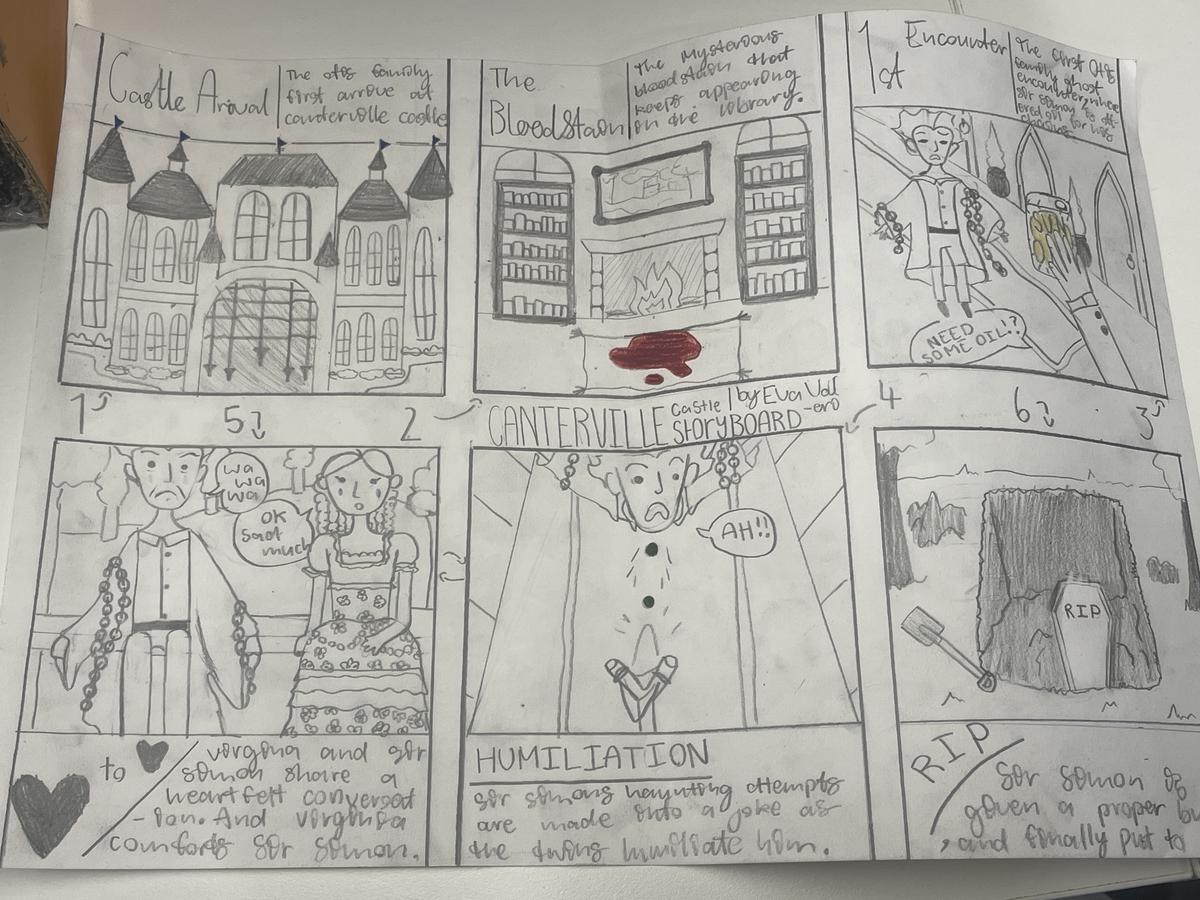 Castle Arival
The otis family
first arrive at
canterville castle
The
BloodStain
The Mysterious
bloodstain that
keeps appearing
in the library.
1st
Encounter
The first Otis
family ghost
encounter, where
sir simon is off-
ered oil for his
NEED
SOME OIL!?
1
5
2
CANTERVILLE Castle
STORYBOARD
by Eva Vall
-ero
4
6
3
wa
wa
wa
OK
Said
much
AH!!
RIP
to
virgina and sir
simon share a
heartfelt conversat
-ion. And virginia
comforts sir simon.
HUMILIATION
sir simons haunting attempts
are made into a joke as
the twins humiliate him.
RIP
Sir simon is
given a proper bu
, and finally put to